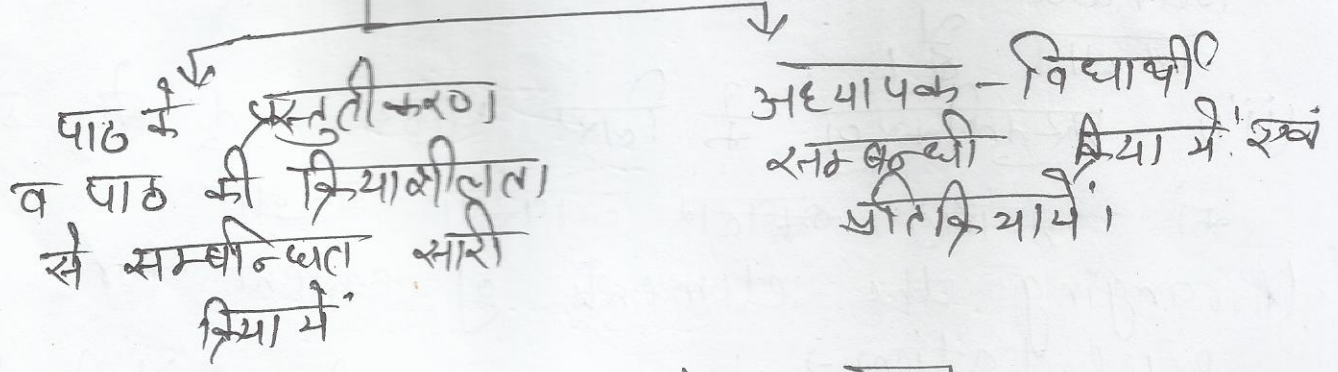 पाठ के प्रस्तुतीकरण
व पाठ की क्रियाशीलता
से सम्बन्धित सारी
क्रियायें
अध्यापक - विद्यार्थी
सम्बन्धी क्रियायें एवं
प्रतिक्रियायें।